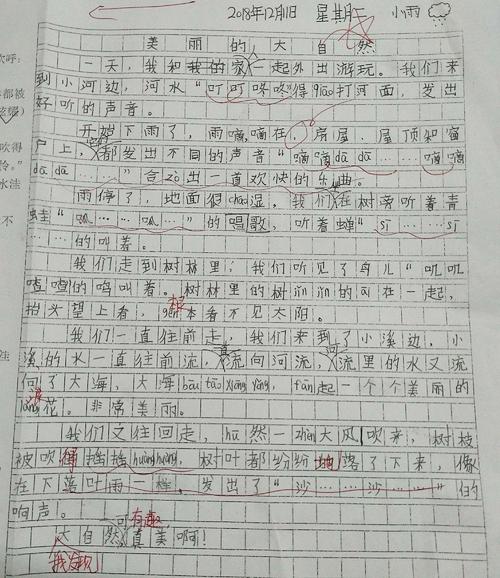 2018年12月11日 星期二 小雨
美丽的大自然
一天，我和我的家一起外出游玩。我们来
到小河边，河水“叮叮咚咚”得qiāo打河面，发出
好听的声音。
开始下雨了，雨嘀嘀在，房屋、屋顶和窗
户上，都发出不同的声音“嘀嘀dā dā……嘀嘀
dā dā……”合zòu出一首欢快的乐曲。
雨停了，地面很cháo湿，我们在树旁听着青
蛙“呱……呱……”的唱歌，听着蝉“sī……sī
……”的叫着。
我们走到树林里；我们听见了鸟儿“叽叽
喳喳的鸣叫着。树林里的树jǐn jǐn的āi在一起，
抬头望上看，根本看不见太阳。
我们一直往前走，我们来到了小溪边，小
溪的水一直往前流，流向河流，河流里的水又流
向了大海，大海bō tāo xiōng yǒng，fān起一个个美丽的
浪花。非常美丽。
我们又往回走，hū然一zhèn大风吹来，树枝
被吹得摇摇huǎnghuǎng，树叶都纷纷地落了下来，像
在下落叶雨一样。发出了“沙……沙……”的
响声。
大自然可真有趣，真美啊！
我发现